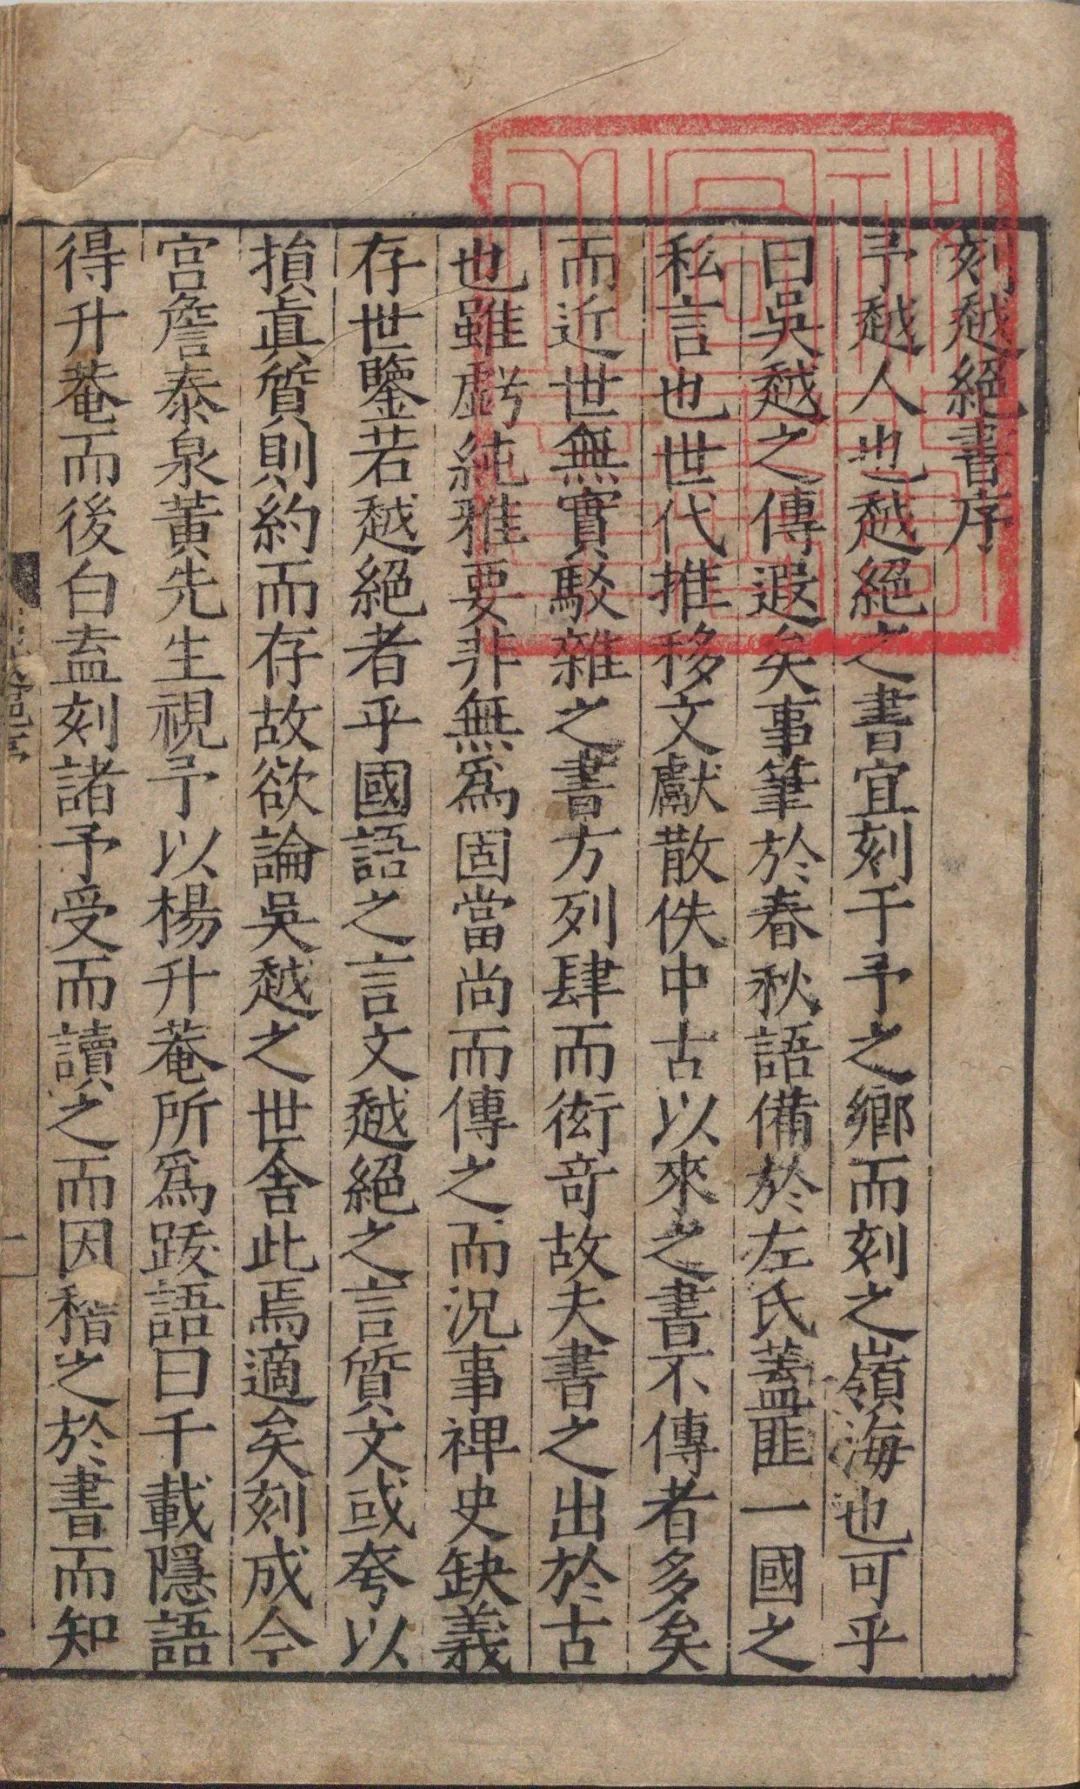 刻越絕書序
予越人也越絕之書宜刻于予之鄉而刻之嶺海也可乎
曰吳越之傳遐矣事筆於春秋語備於左氏蓋匪一國之
私言也世代推移文獻散佚中古以來之書不傳者多矣
而近世無實駁雜之書方列肆而衒竒故夫書之出於古
也雖虧純雅要非無爲固當尚而傳之而况事禆史缺義
存世鑒若越絕者乎國語之言文越絕之言質文或夸以
損眞質則約而存故欲論吳越之世舍此焉適矣刻成今
宮詹泰泉黃先生視予以楊升菴所爲跋語曰千載隱語
得升菴而後白盍刻諸予受而讀之而因稽之於書而知